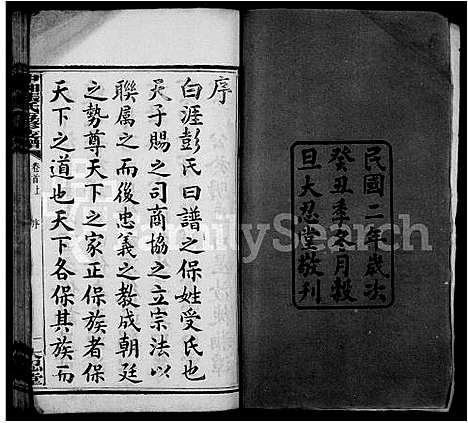 民國二年歲次
癸丑季冬月穀
旦大忍堂敬刊
序
白涯彭氏曰譜之保姓受氏也
天子賜之司商協之立宗法以
聯属之而後忠義之教成朝廷
之勢尊天下之家正保族者保
天下之道也天下各保其族而
卷首上
序
FamilySearch